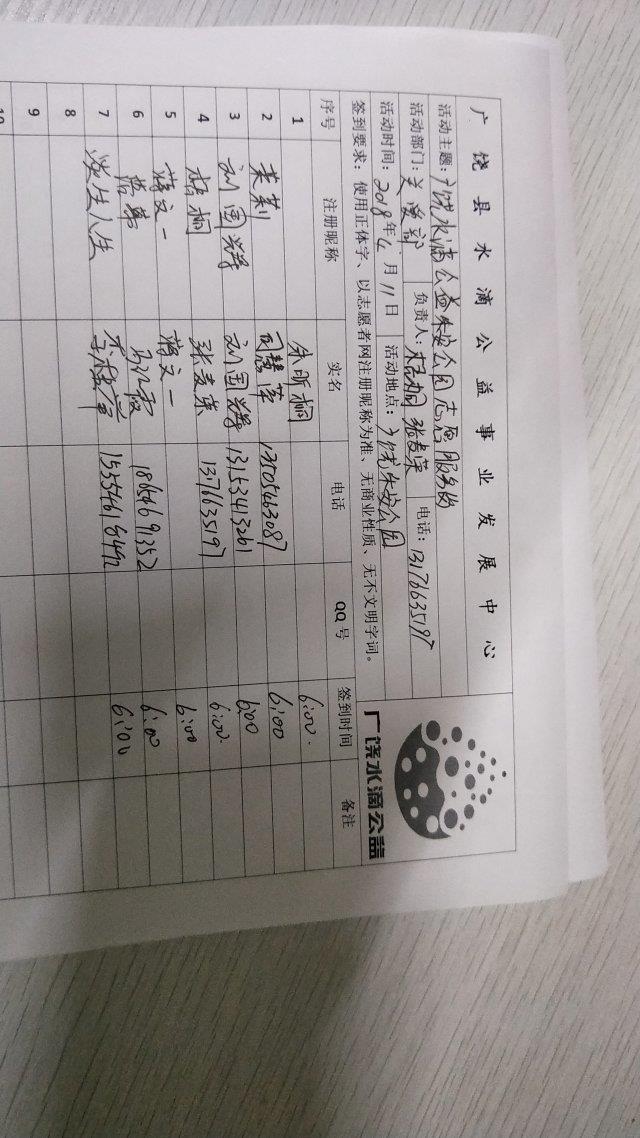 广饶县水滴公益事业发展中心
活动主题：广饶水滴公益朱安公园志愿服务的
活动部门：关爱部 负责人：梧桐 张麦荣 电话：13176635197
活动时间：2018年4月11日 活动地点：广饶朱安公园
签到要求：使用正体字、以志愿者网注册昵称为准、无商业性质、无不文明字词。
广饶水滴公益
序号 注册昵称 实名 电话 QQ号 签到时间 备注
1 朱昕桐 6:00.
2 茉莉 司慧荣 13505463087 6:00
3 刘国辉 刘国辉 13153413261 6:00
4 梧桐 13176635197 6:00.
5 蒋文一 蒋文一 6:00
6 18654691352 6:00
7 淡定人生 6:00
8
9
10